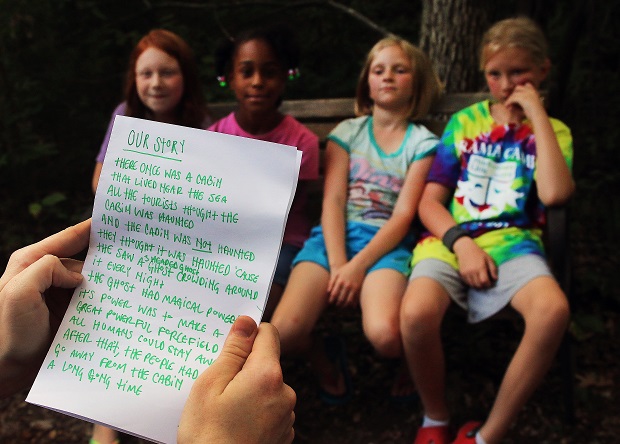 OUR STORY
THERE ONCE WAS A CABIN
THAT LIVED NEAR THE SEA
ALL THE TOURISTS THOUGHT THE
CABIN WAS HAUNTED
AND THE CABIN WAS NOT HAUNTED
THEY THOUGHT IT WAS HAUNTED 'CAUSE
3 HEADED GHOST
THE SAW A GHOST CROWDING AROUND
IT EVERY NIGHT
THE GHOST HAD MAGICAL POWERS
IT'S POWER WAS TO MAKE A
GREAT POWERFUL FORCEFIELD
ALL HUMANS COULD STAY AWAY
AFTER THAT, THE PEOPLE HAD
GO AWAY FROM THE CABIN
A LONG LONG TIME
DRAMA CAMP